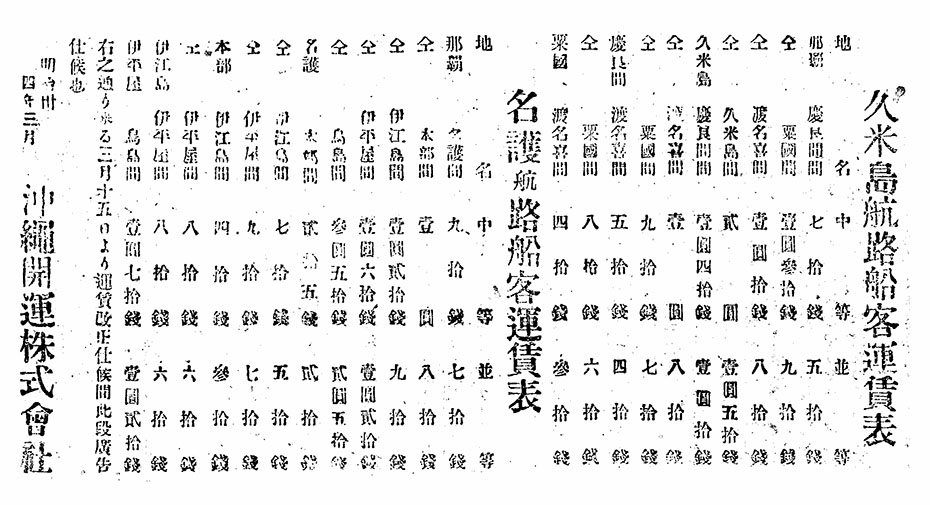 久米島航路船客運賃表
地名 中等 並等
那覇 慶良間間 七拾錢 五拾錢
仝 粟國間 壹圓參拾錢 九拾錢
仝 渡名喜間 壹圓拾錢 八拾錢
仝 久米島間 貳圓 壹圓五拾錢
久米島 慶良間間 壹圓四拾錢 壹圓拾錢
仝 渡名喜間 壹圓 八拾錢
仝 粟國間 九拾錢 七拾錢
慶良間 渡名喜間 五拾錢 四拾錢
仝 粟國間 八拾錢 六拾錢
粟國 渡名喜間 四拾錢 參拾錢
名護航路船客運賃表
地名 中等 並等
那覇 名護間 九拾錢 七拾錢
仝 本部間 壹圓 八拾錢
仝 伊江島間 壹圓貳拾錢 九拾錢
仝 伊平屋間 壹圓六拾錢 壹圓貳拾錢
仝 鳥島間 參圓五拾錢 貳圓五拾錢
名護 本部間 貳拾五錢 貳拾錢
仝 伊江島間 七拾錢 五拾錢
仝 伊平屋間 九拾錢 七拾錢
本部 伊江島間 四拾錢 參拾錢
仝 伊平屋間 八拾錢 六拾錢
伊江島 伊平屋間 八拾錢 六拾錢
伊平屋 鳥島間 壹圓七拾錢 壹圓貳拾錢
右之通り來る三月十五日より運賃改正仕候間此段廣告
仕候也
明治卅
四年三月
沖繩開運株式會社